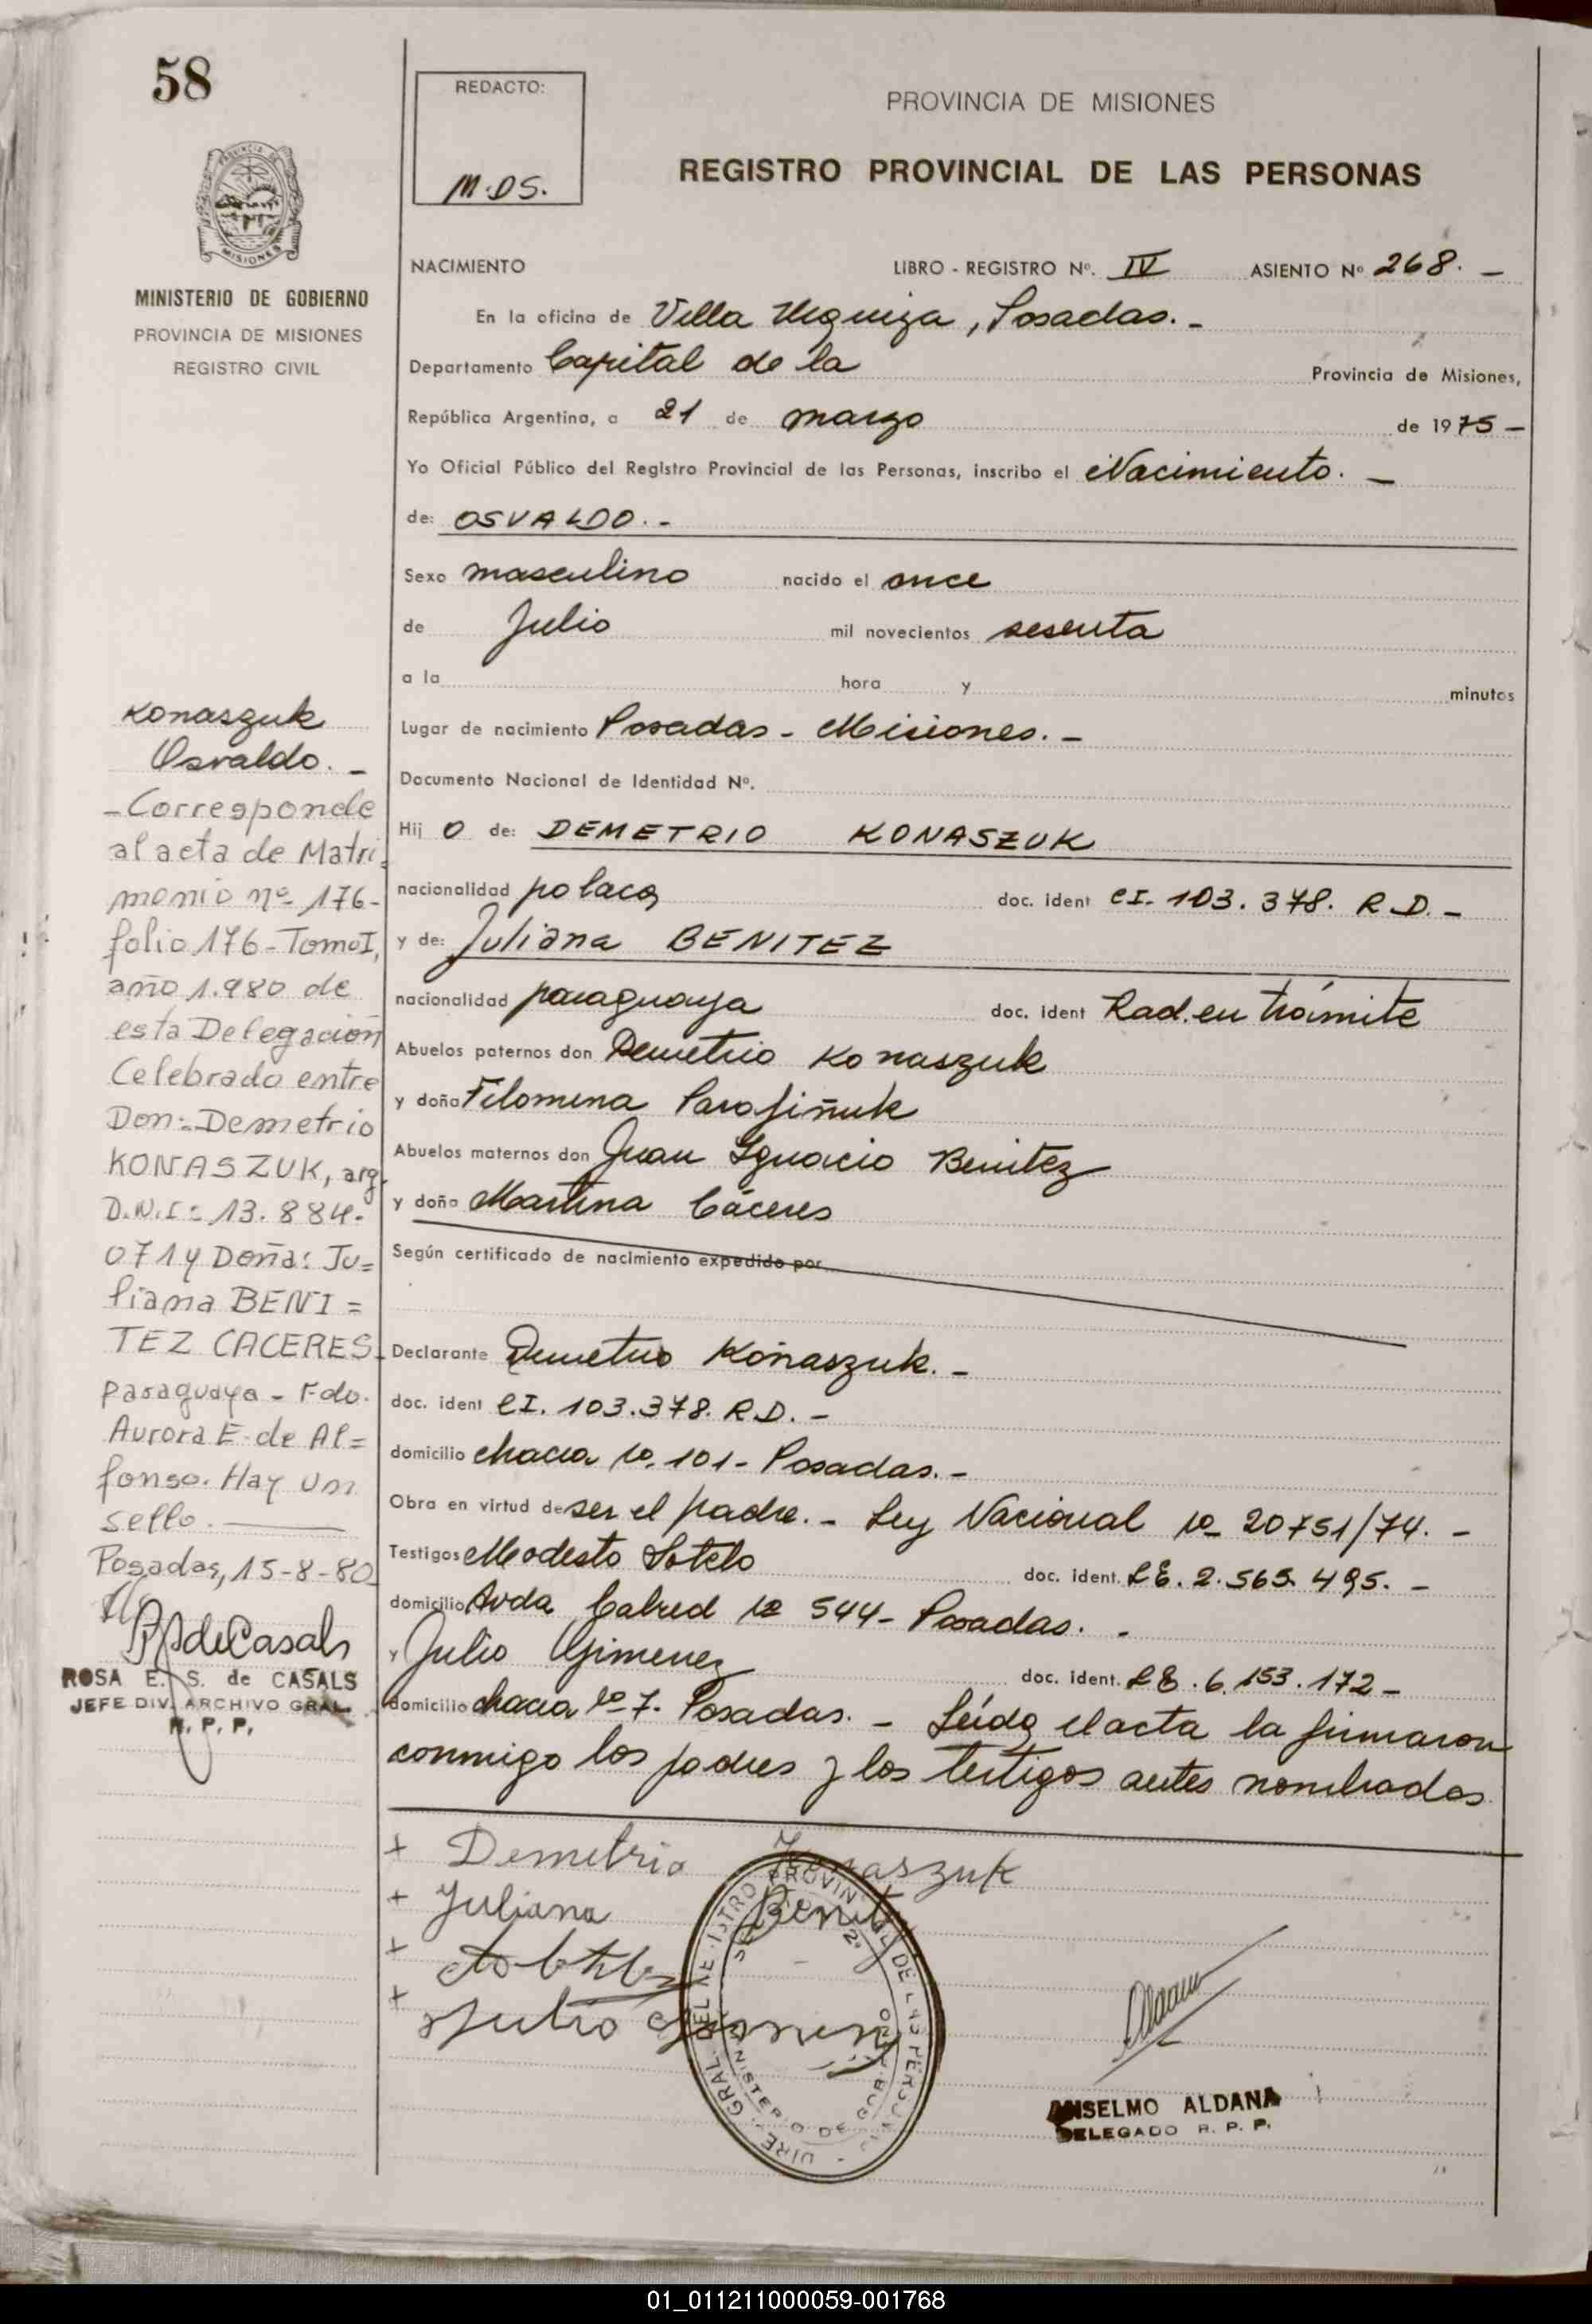 58
REDACTO:
M.DS.
PROVINCIA DE MISIONES
REGISTRO PROVINCIAL DE LAS PERSONAS
PROVINCIA DE
MISIONES
MINISTERIO DE GOBIERNO
PROVINCIA DE MISIONES
REGISTRO CIVIL
NACIMIENTO LIBRO - REGISTRO Nº. IV ASIENTO Nº 268. -
En la oficina de Villa Urquiza, Posadas. -
Departamento Capital de la Provincia de Misiones,
República Argentina, a 21 de marzo de 1975 -
Yo Oficial Público del Registro Provincial de las Personas, inscribo el Nacimiento. -
de: OSVALDO. -
Sexo masculino nacido el once
de Julio mil novecientos sesenta
a la hora y minutos
Lugar de nacimiento Posadas - Misiones. -
Documento Nacional de Identidad Nº.
Hij o de: DEMETRIO KONASZUK
nacionalidad polaca doc. ident CI. 103.378. R.D. -
y de: Juliana BENITEZ
nacionalidad paraguaya doc. ident Rad. en trámite
Abuelos paternos don Demetrio Konaszuk
y doña Filomena Parafiñuk
Abuelos maternos don Juan Ignacio Benitez
y doña Martina Cáceres
Según certificado de nacimiento expedido por
Declarante Demetrio Konaszuk. -
doc. ident CI. 103.378. R.D. -
domicilio chacra Nº 101 - Posadas. -
Obra en virtud de ser el padre. - Ley Nacional Nº 20751/74. -
Testigos Modesto Sotelo doc. ident. LE. 2.565.495. -
domicilio Avda Cabred Nº 544 - Posadas. -
y Julio Gimenez doc. ident. LE. 6.153.172 -
domicilio chacra Nº 7. Posadas. - Leída el acta la firmaron
conmigo los padres y los testigos antes nombrados
Konaszuk
Osvaldo. -
- Corresponde
al acta de Matri
monio nº 176-
folio 176 - Tomo I,
año 1.980 de
esta Delegación
Celebrado entre
Don: Demetrio
KONASZUK, arg.
D.N.I: 13.884.
071 y Doña: Ju=
liana BENI=
TEZ CACERES
paraguaya - Fdo.
Aurora E. de Al=
fonso. Hay un
sello.
Posadas, 15-8-80
ROSA E. S. de CASALS
JEFE DIV. ARCHIVO GRAL.
R. P. P.
+ Demetrio Konaszuk
+ Juliana Benit
+
+ Julio
DIRE GRAL. DEL REGISTRO PROVINCIAL DE LAS PERSONAS
MINISTERIO DE GOBIERNO
ANSELMO ALDANA
DELEGADO R. P. P.
01_011211000059-001768